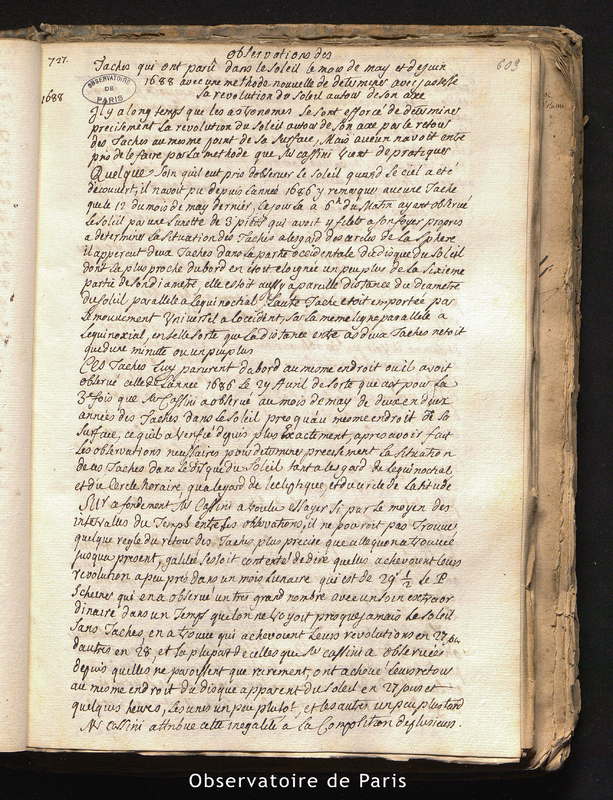 727.
603
observations des
Taches qui ont parû dans le Soleil le mois de may et de juin
1688 avec une methode nouvelle de determiner avec justesse
la revolution du Soleil autour de son axe
OBSERVATOIRE
DE
PARIS
1688
Il y a long temps que les astronomes se sont efforcé de determiner
precisement la revolution du Soleil autour de son axe par le retour
des Taches au mesme point de sa surface, Mais aucun n'avoit entre
pris de le faire par la methode que Mr Cassini vient de pratiquer
Quelque soin qu'il eut pris d'observer le Soleil quand le ciel a eté
decouvert, il n'avoit pu depuis l'année 1686 y remarquer aucune Tache
que le 12 du mois de may dernier, ce jour la a 6h du Matin ayant observé
le Soleil par une lunette de 3 pieds qui avoit des filets a son foyer propres
a determiner la situation des Taches a l'esgard des cercles de la Sphere
il apperceut deux Taches dans la partie occidentale du disque du Soleil
dont la plus proche du bord en etoit eloignée un peu plus de la sixieme
partie de son diametre, elle estoit aussy a pareille distance du diametre
du Soleil parallele a l'equinoctial. L'autre Tache etoit emportée par
le mouvement Universel a l'occident, sur la mesme ligne parallele a
l'equinoxial, en telle sorte que la distance entre ces deux Taches n'etoit
que d'une minute ou un peu plus
Ces Taches luy parurent d'abord au mesme endroit ou il avoit
observé celle de l'année 1686 le 29 Avril de sorte que c'est pour la
3e fois que Mr Cassini a observé au mois de may de deux en deux
années des Taches dans le Soleil presqu'au mesme endroit de sa
surface, ce qu'il a verifié depuis plus Exactement, apres avoir fait
les observations necessaires pour determiner precisement la situation
de ces Taches dans le disque du Soleil tant a l'esgard de l'equinoctial,
et du Cercle horaire qu'a l'egard de l'ecliptique, et du cercle de latitude
Sur ce fondement Mr Cassini a voulu essayer si par le moyen des
intervalles du Temps entre les observations, il ne pourroit pas Trouver
quelque regle du retour des Taches plus precise que celle qu'on a trouvée
jusqu'a present, galilée s'estoit contenté de dire qu'elles achevoient leurs
revolution a peu prés dans un mois lunaire qui est de 29j 1/2 le P
Scheiner qui en a observé un tres grand nombre avec un soin extraor
dinaire dans un Temps que l'on ne voyoit presque jamais le Soleil
sans Taches en a trouvé qui achevoient leurs revolutions en 27 jrs
d'autres en 28 et la pluspart de celles que Mr Cassini a observées
depuis qu'elles ne paroissent que rarement, ont achevé leurs retour
au mesme endroit du disque apparent du Soleil en 27 jours et
quelques heures, les unes un peu plutot, et les autres un peu plus tard
Mr Cassini attribue cette inegalité a la Composition de plusieurs
Observatoire de Paris